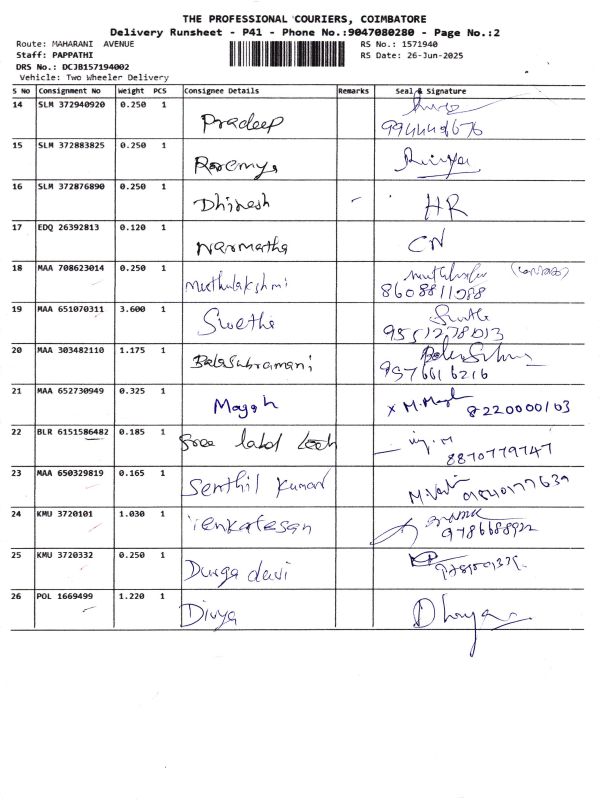 THE PROFESSIONAL COURIERS, COIMBATORE
Delivery Runsheet - P41 - Phone No.:9047080280 - Page No.:2
Route: MAHARANI AVENUE RS No.: 1571940
Staff: PAPPATHI RS Date: 26-Jun-2025
DRS No.: DCJB157194002
Vehicle: Two Wheeler Delivery
S No Consignment No Weight PCS Consignee Details Remarks Seal & Signature
14 SLM 372940920 0.250 1 Pradeep
15 SLM 372883825 0.250 1
16 SLM 372876890 0.250 1 Dhinesh HR
17 EDQ 26392813 0.120 1 Narmatha CN
18 MAA 708623014 0.250 1 Muthulakshmi
8608811988
19 MAA 651070311 3.600 1 Swetha
20 MAA 303482110 1.175 1 Balasubramani
9576616216
21 MAA 652730949 0.325 1 Magesh x M. 8220000103
22 BLR 6151586482 0.185 1 Free label
8870779747
23 MAA 650329819 0.165 1 Senthil Kumar
24 KMU 3720101 1.030 1 Venkatesan
9786688922
25 KMU 3720332 0.250 1 Durga devi
26 POL 1669499 1.220 1 Divya Dhivya